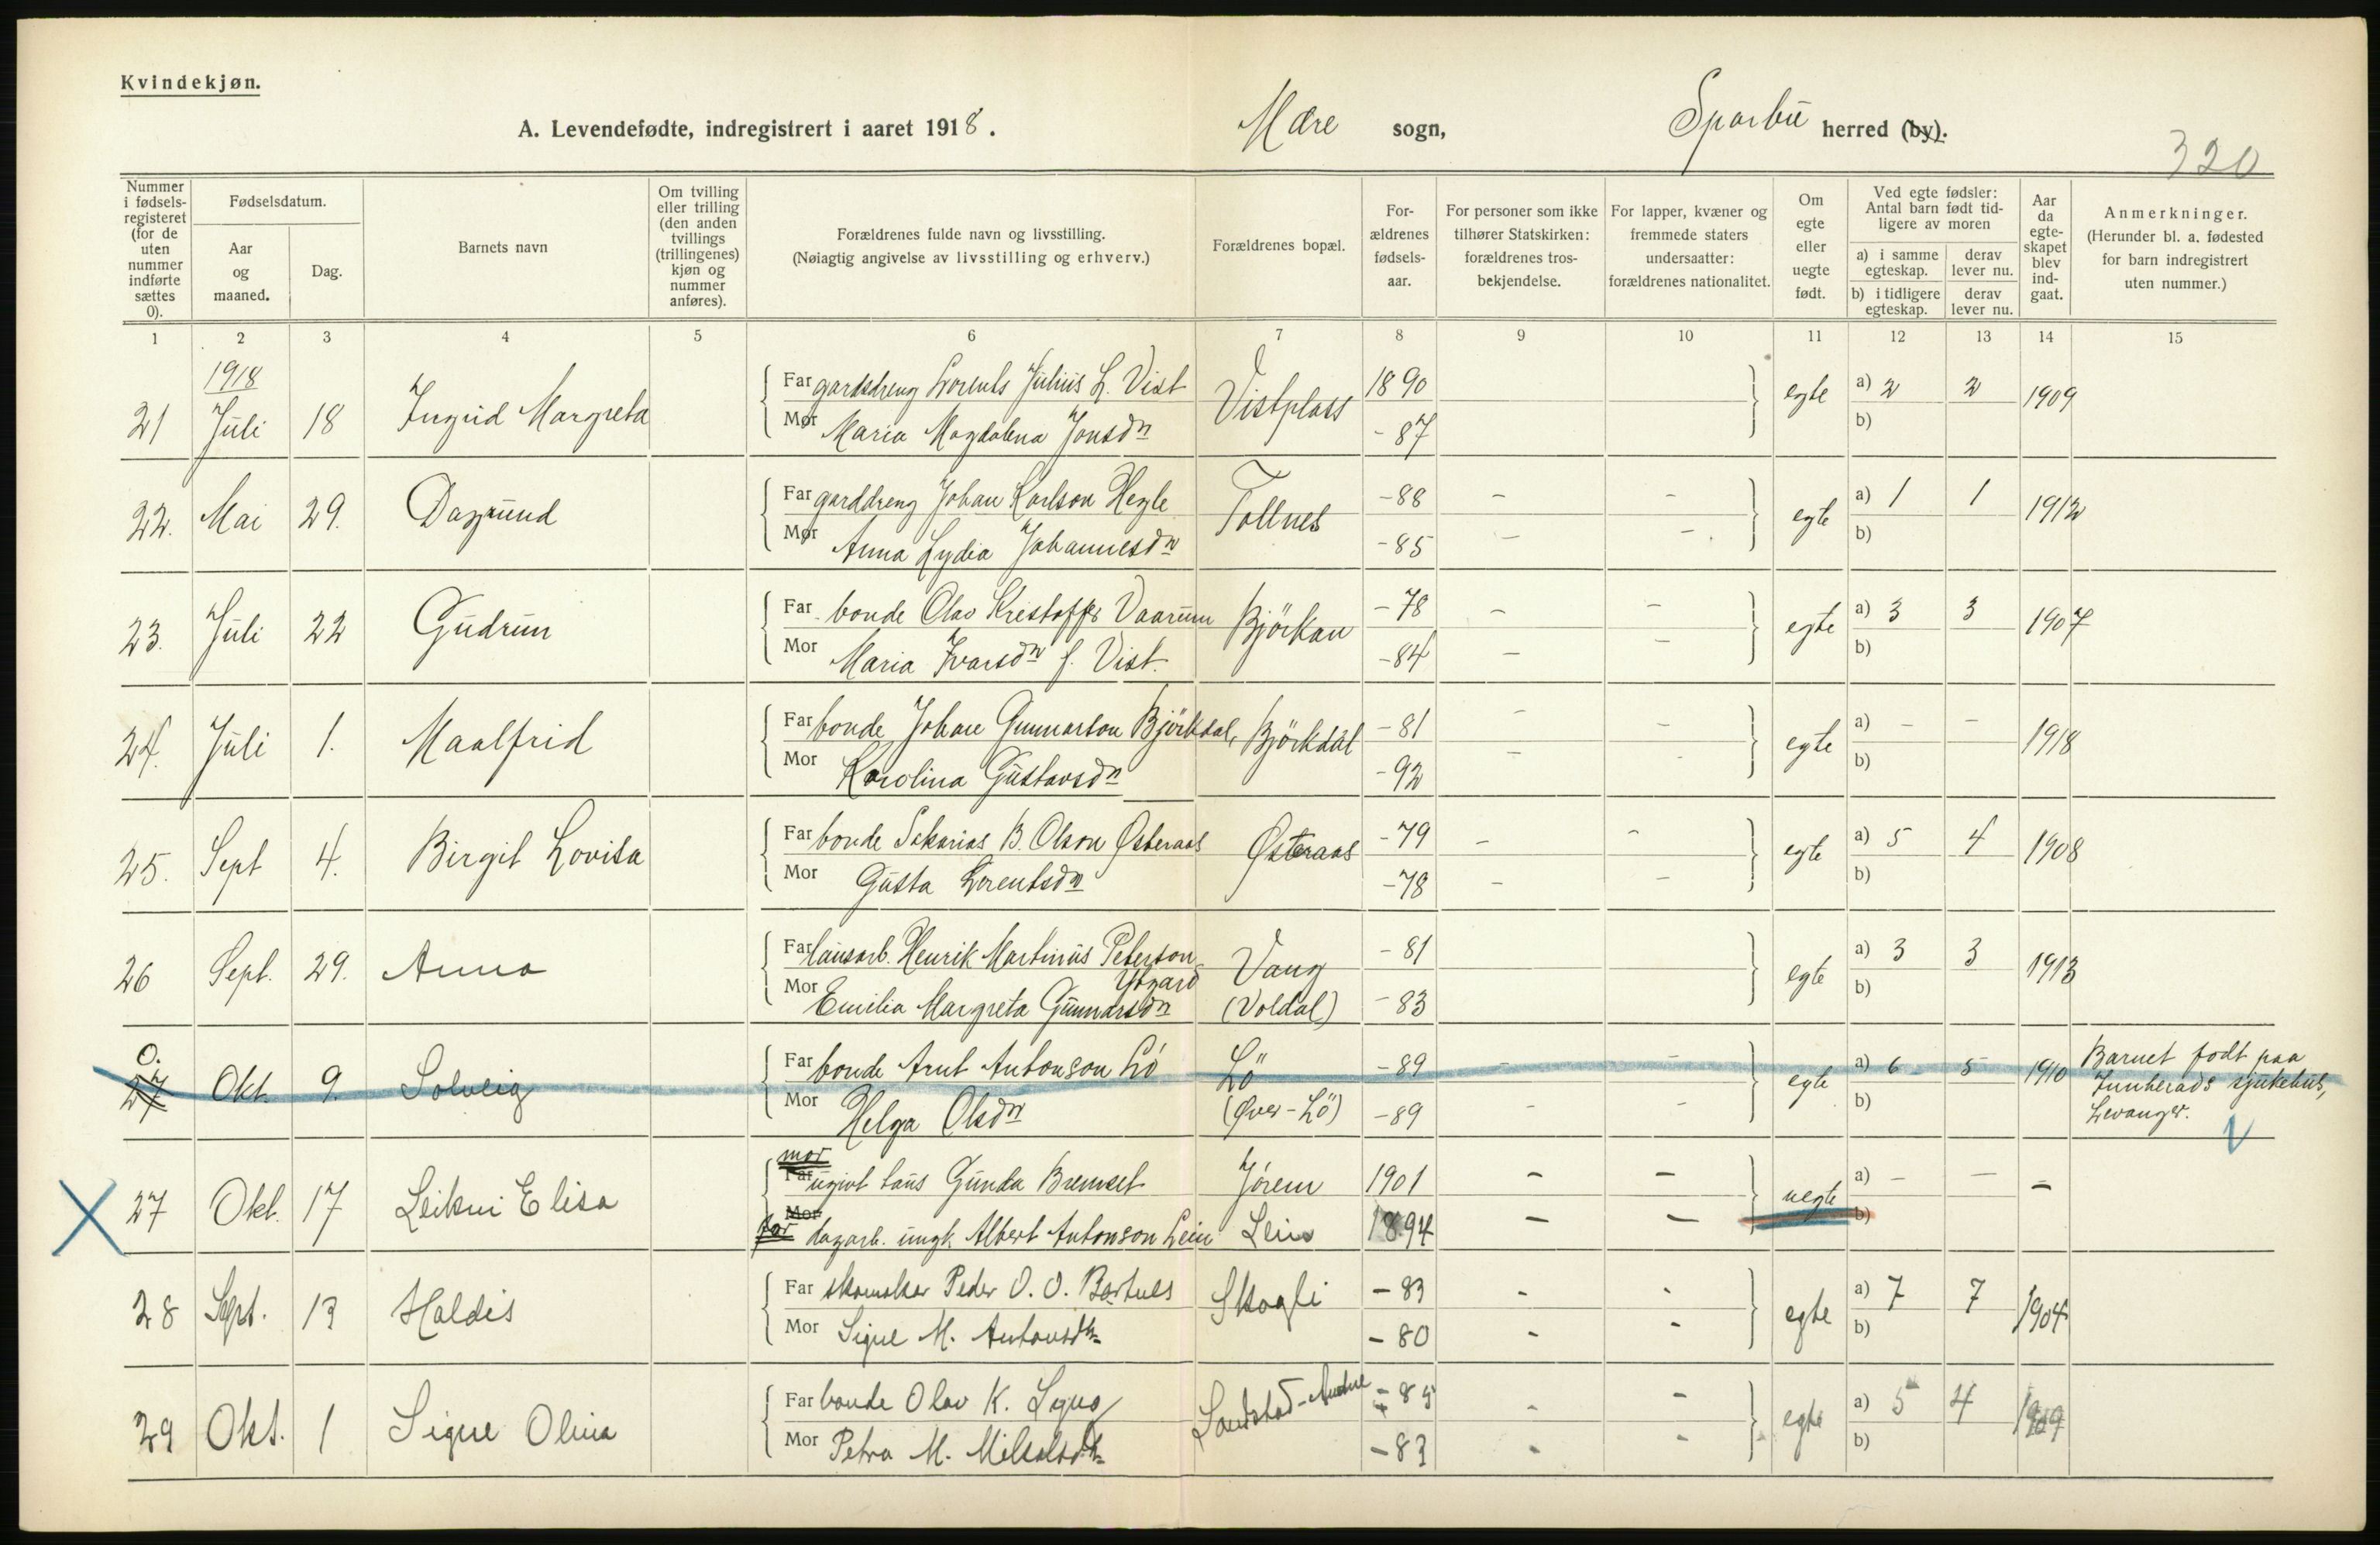 Kvindekjøn.
A. Levendefødte, indregistrert i aaret 1918. Mære sogn, Sparbu herred (by).
320
Nummer i fødsels-registeret (for de uten nummer indførte sættes 0). Fødselsdatum. Aar og maaned. Dag. Barnets navn Om tvilling eller trilling (den anden tvillings (trillingenes) kjøn og nummer anføres). Forældrenes fulde navn og livsstilling. (Nøiagtig angivelse av livsstilling og erhverv.) Forældrenes bopæl. For-ældrenes fødsels-aar. For personer som ikke tilhører Statskirken: forældrenes tros-bekjendelse. For lapper, kvæner og fremmede staters undersaatter: forældrenes nationalitet. Om egte eller uegte født. Ved egte fødsler: Antal barn født tid-ligere av moren a) i samme egteskap. derav lever nu. b) i tidligere egteskap. derav lever nu. Aar da egte-skapet blev ind-gaat. Anmerkninger. (Herunder bl. a. fødested for barn indregistrert uten nummer.)
1 2 3 4 5 6 7 8 9 10 11 12 13 14 15
1918
21 Juli 18 Ingrid Margreta Far gardsdreng Lorents Julius L. Vist Vistplass 1890 egte a) 2 2 1909
Mor Maria Magdalena Jonsdn - 87 b)
22. Mai 29. Dagrund Far garddreng Johan Karlson Hegle Tollnes -88 - - egte a) 1 1 1912
Mor Anna Lydia Johannesdn -85 - - b)
23. Juli 22 Gudrun Far bonde Olav Kristoffer Vaarum Björkan -78 - - egte a) 3 3 1907
Mor Maria Ivarsdn f. Vist. -84 - - b)
24. Juli 1. Maalfrid Far bonde Johan Gunnarson Björkdal, Björkdal -81 - - egte a) - - 1918
Mor Karolina Gustavsdn -92 - - b)
25. Sept 4. Birgit Lovisa Far bonde Sakarias B. Olson Østeraas Østeraas -79 - - egte a) 5 4 1908
Mor Gusta Lorentsdn -78 - - b)
26 Sept. 29. Anna Far lausarb. Henrik Martinus Peterson Vang - 81 egte a) 3 3 1913
Mor Emilia Margreta Gunnarsdn (Voldal) - 83 b)
0. 27 Okt. 9. Solveig Far bonde Arnt Antonson Lö Lö -89 - - egte a) 6 5 1910 Barnet født paa
Innherads sjukehus,
Mor Helga Olsdn (Øver-Lö) -89 - - b) Levanger.
27 Okt. 17 Leikni Elisa mor Far ugivt taus Gunda Bremset Jörem 1901 - - uegte a) - - -
Mor far dagarb. ungk. Albert Antonson Lein Lein 1894 - - b)
28 Sept. 13 Haldis Far skomaker Peder O. O. Bartnes Skogli - 83 - - egte a) 7 7 1904
Mor Signe M. Antonsdtr - 80 - - b)
29 Okt. 1 Signe Olina Far bonde Olav K. Sandstad - 85 - - egte a) 5 4 1909
Mor Petra M. - 83 - - b)